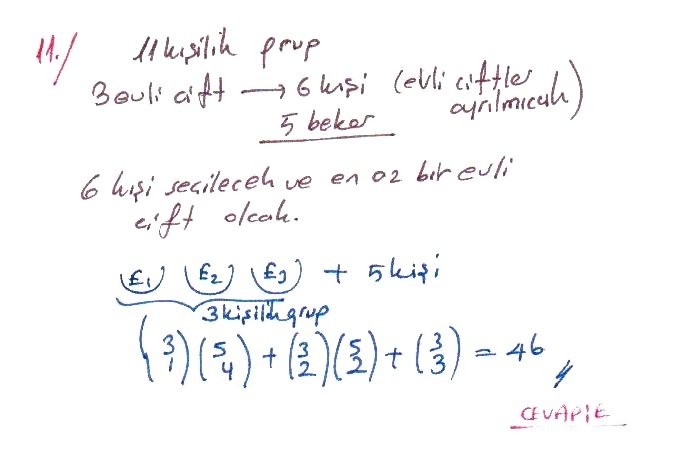 11./ 11 kişilik grup
3 evli çift → 6 kişi (evli çiftler ayrılmıcak)
5 bekar
6 kişi seçilecek ve en az bir evli
çift olcak.
(E1) (E2) (E3) + 5 kişi
3 kişilik grup
(3 1)(5 4) + (3 2)(5 2) + (3 3) = 46
CEVAP: E